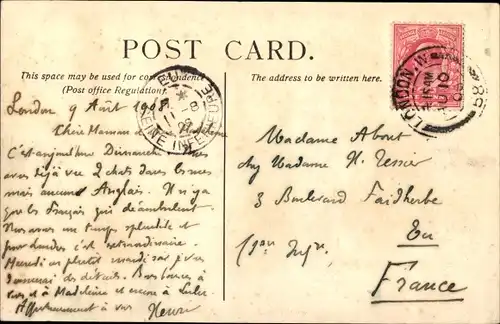 POST CARD.
This space may be used for correspondence
(Post office Regulation).
The address to be written here.
London 9 Août 1908.
Chère Maman
C'est aujourd'hui Dimanche
avons déjà vu 2 chats dans les rues
mais aucuns Anglais. Il n'y a
que les français qui déambulent.
Nous avons un temps splendide et
pour Londres c'est extraordinaire.
ou plutôt mardi soir je vous
donnerai des détails. Bons baisers à
vous, et à Madeleine et encore à Lulu.
Affectueusement à vous Henri
Madame About
chez Madame H. Tessier
3 Boulevard Faidherbe
Eu
(Seine Infre)
France
LONDON. W
AU 10
08
SEINE INFERIEURE